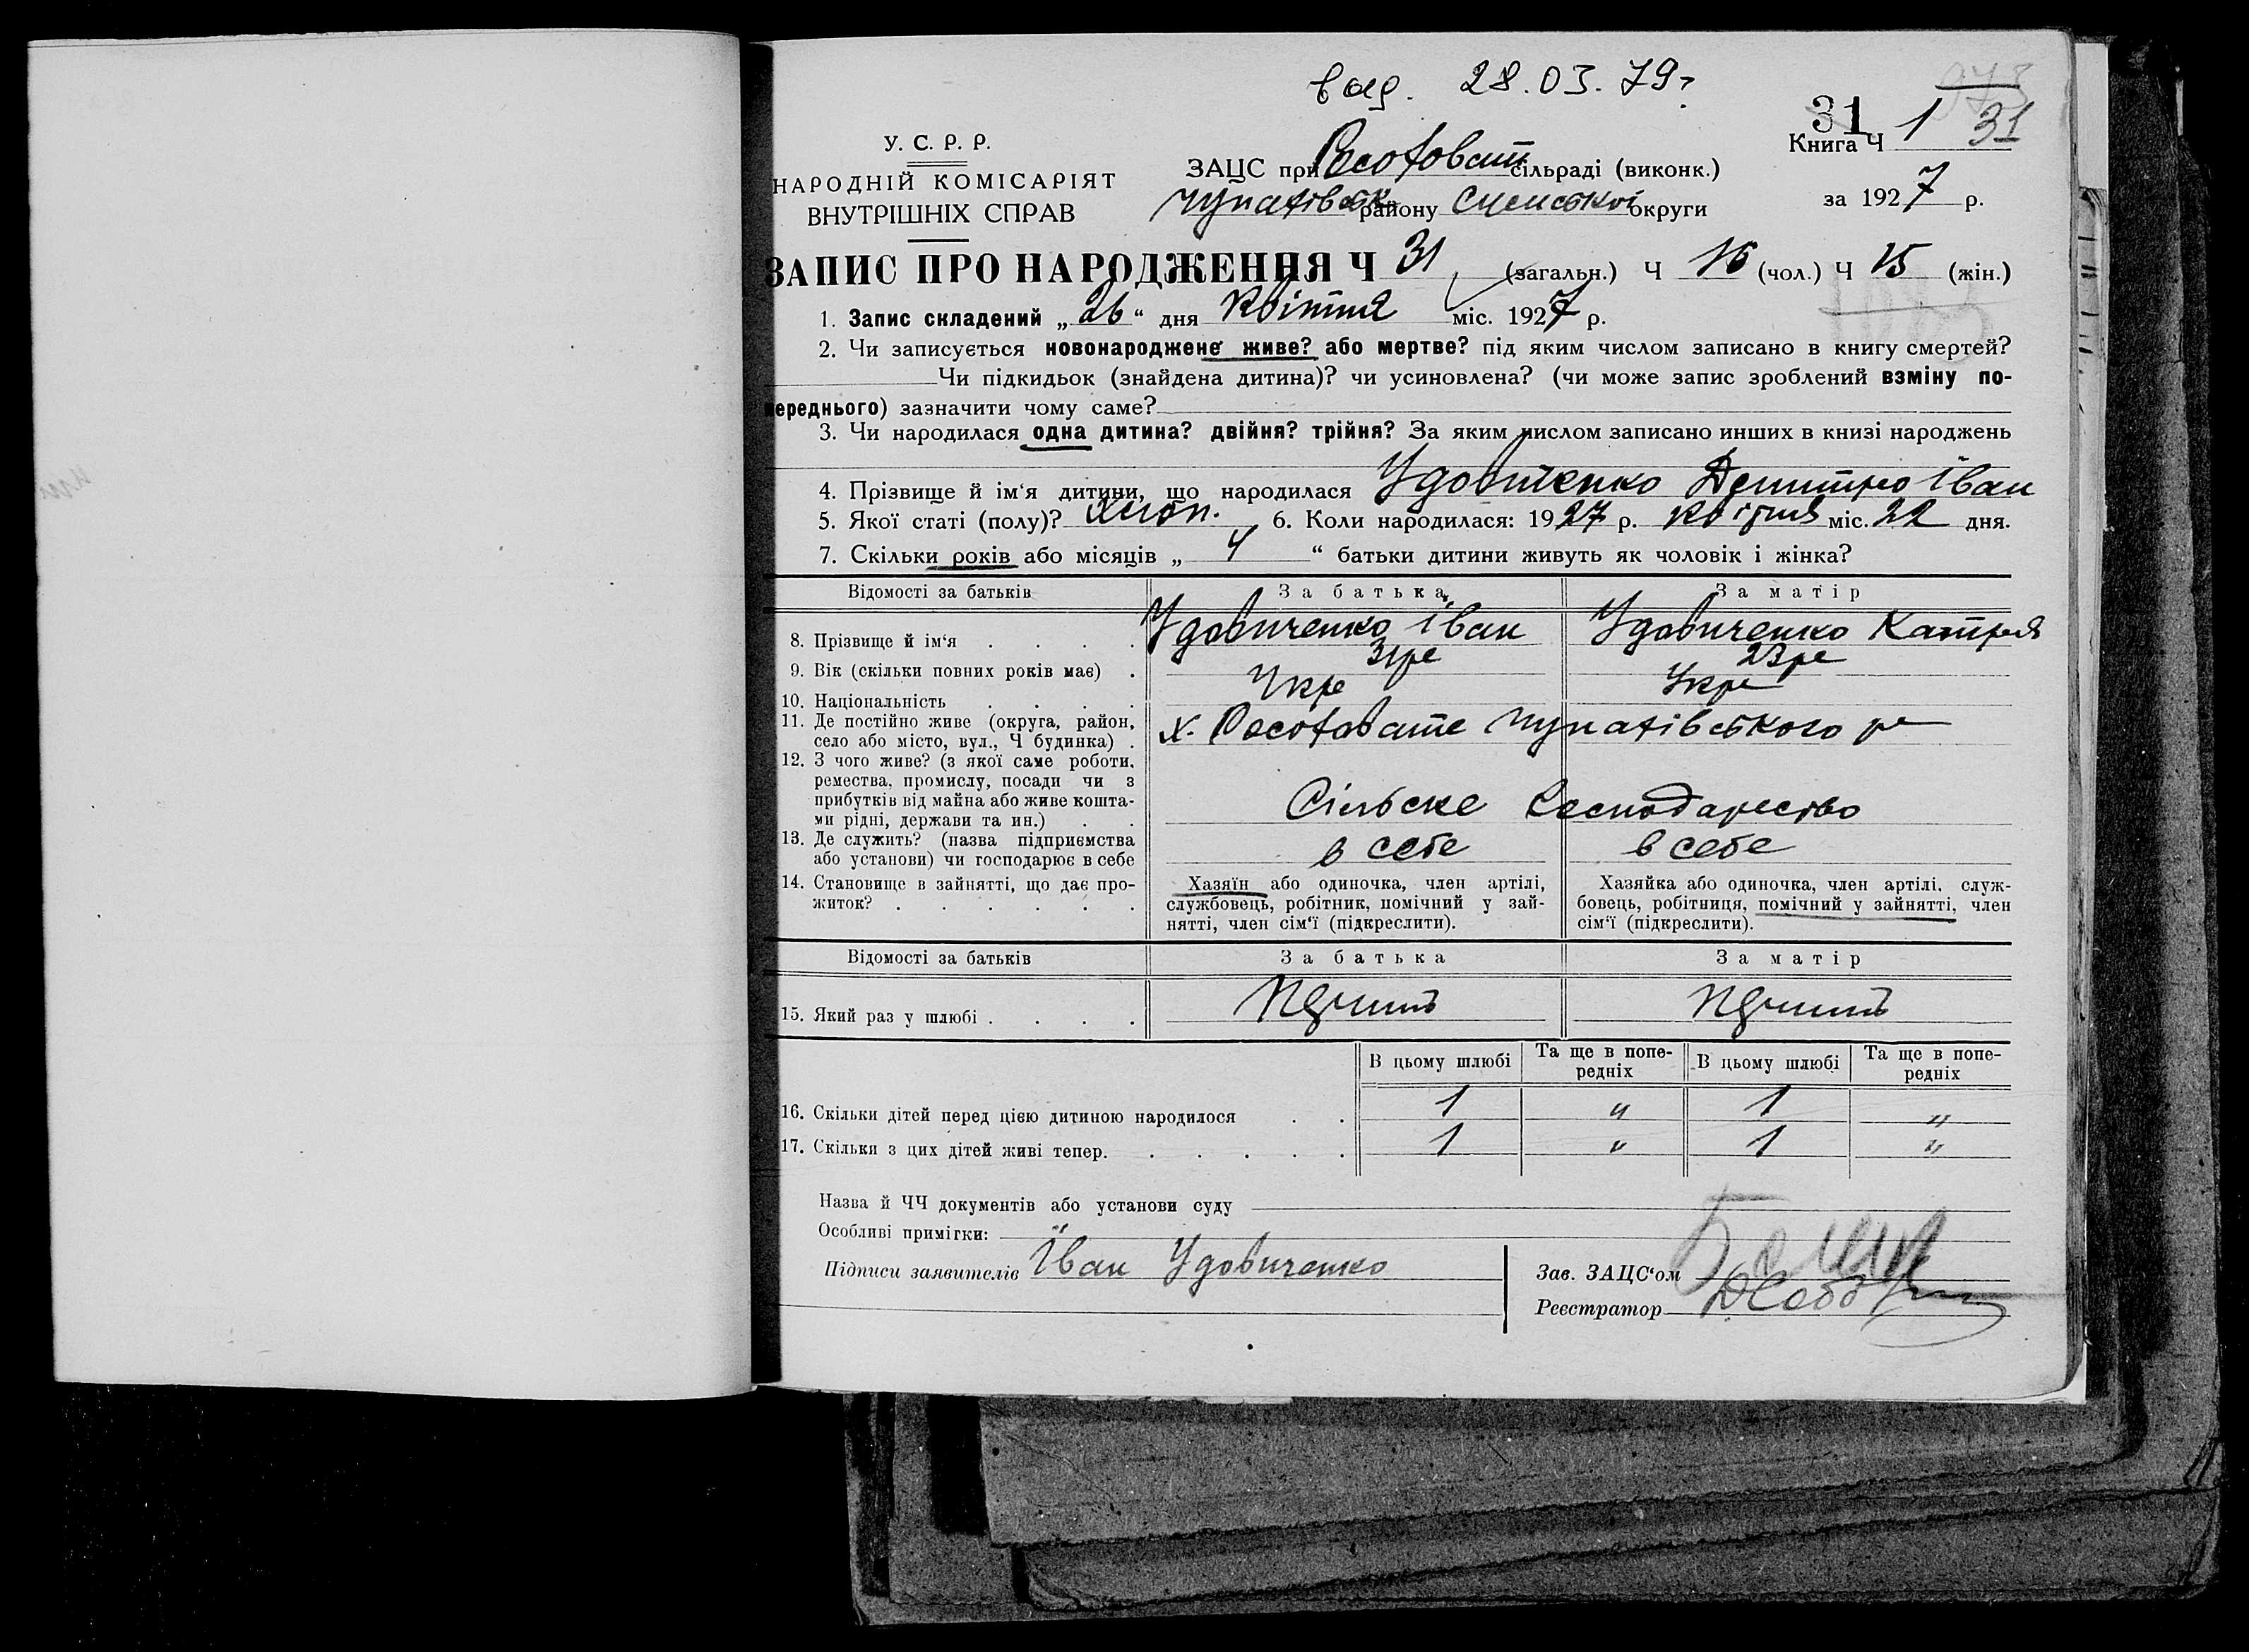 вид. 28.03.79г
31
31
Книга Ч 1
У. С. Р. Р.
НАРОДНІЙ КОМІСАРІЯТ
ВНУТРІШНІХ СПРАВ
ЗАЦС при сільраді (виконк.)
району Сумської округи
за 1927 р.
ЗАПИС ПРО НАРОДЖЕННЯ Ч 31 (загальн.) Ч 16 (чол.) Ч 15 (жін.)
1. Запис складений „26“ дня Квітня міс. 1927 р.
2. Чи записується новонароджене живе? або мертве? під яким числом записано в книгу смертей?
Чи підкидьок (знайдена дитина)? чи усиновлена? (чи може запис зроблений взміну по-
переднього) зазначити чому саме?
3. Чи народилася одна дитина? двійня? трійня? За яким числом записано инших в книзі народжень
4. Прізвище й ім‘я дитини, що народилася Удовиченко Дмитро Іван
5. Якої статі (полу)? хлоп. 6. Коли народилася: 1927 р. квітня міс. 22 дня.
7. Скільки років або місяців „ 4 “ батьки дитини живуть як чоловік і жінка?
Відомості за батьків За батька За матір
8. Прізвище й ім‘я Удовиченко Іван Удовиченко Катря
9. Вік (скільки повних років має) 31 р 23 р
10. Національність Укр Укр
11. Де постійно живе (округа, район,
село або місто, вул., Ч будинка) х.
12. З чого живе? (з якої саме роботи,
ремества, промислу, посади чи з
прибутків від майна або живе кошта-
ми рідні, держави та ин.) Сільске Господарство
13. Де служить? (назва підприємства
або установи) чи господарює в себе в себе в себе
14. Становище в зайнятті, що дає про-
житок?
Хазяїн або одиночка, член артілі,
службовець, робітник, помічний у зай-
нятті, член сім‘ї (підкреслити).
Хазяйка або одиночка, член артілі, служ-
бовець, робітниця, помічний у зайнятті, член
сім‘ї (підкреслити).
Відомості за батьків За батька За матір
15. Який раз у шлюбі
В цьому шлюбі Та ще в попе-
редніх В цьому шлюбі Та ще в попе-
редніх
16. Скільки дітей перед цією дитиною народилося 1 „ 1 „
17. Скільки з цих дітей живі тепер. 1 „ 1 „
Назва й ЧЧ документів або установи суду
Особливі примігки:
Підписи заявителів Іван Удовиченко
Зав. ЗАЦС‘ом
Реєстратор